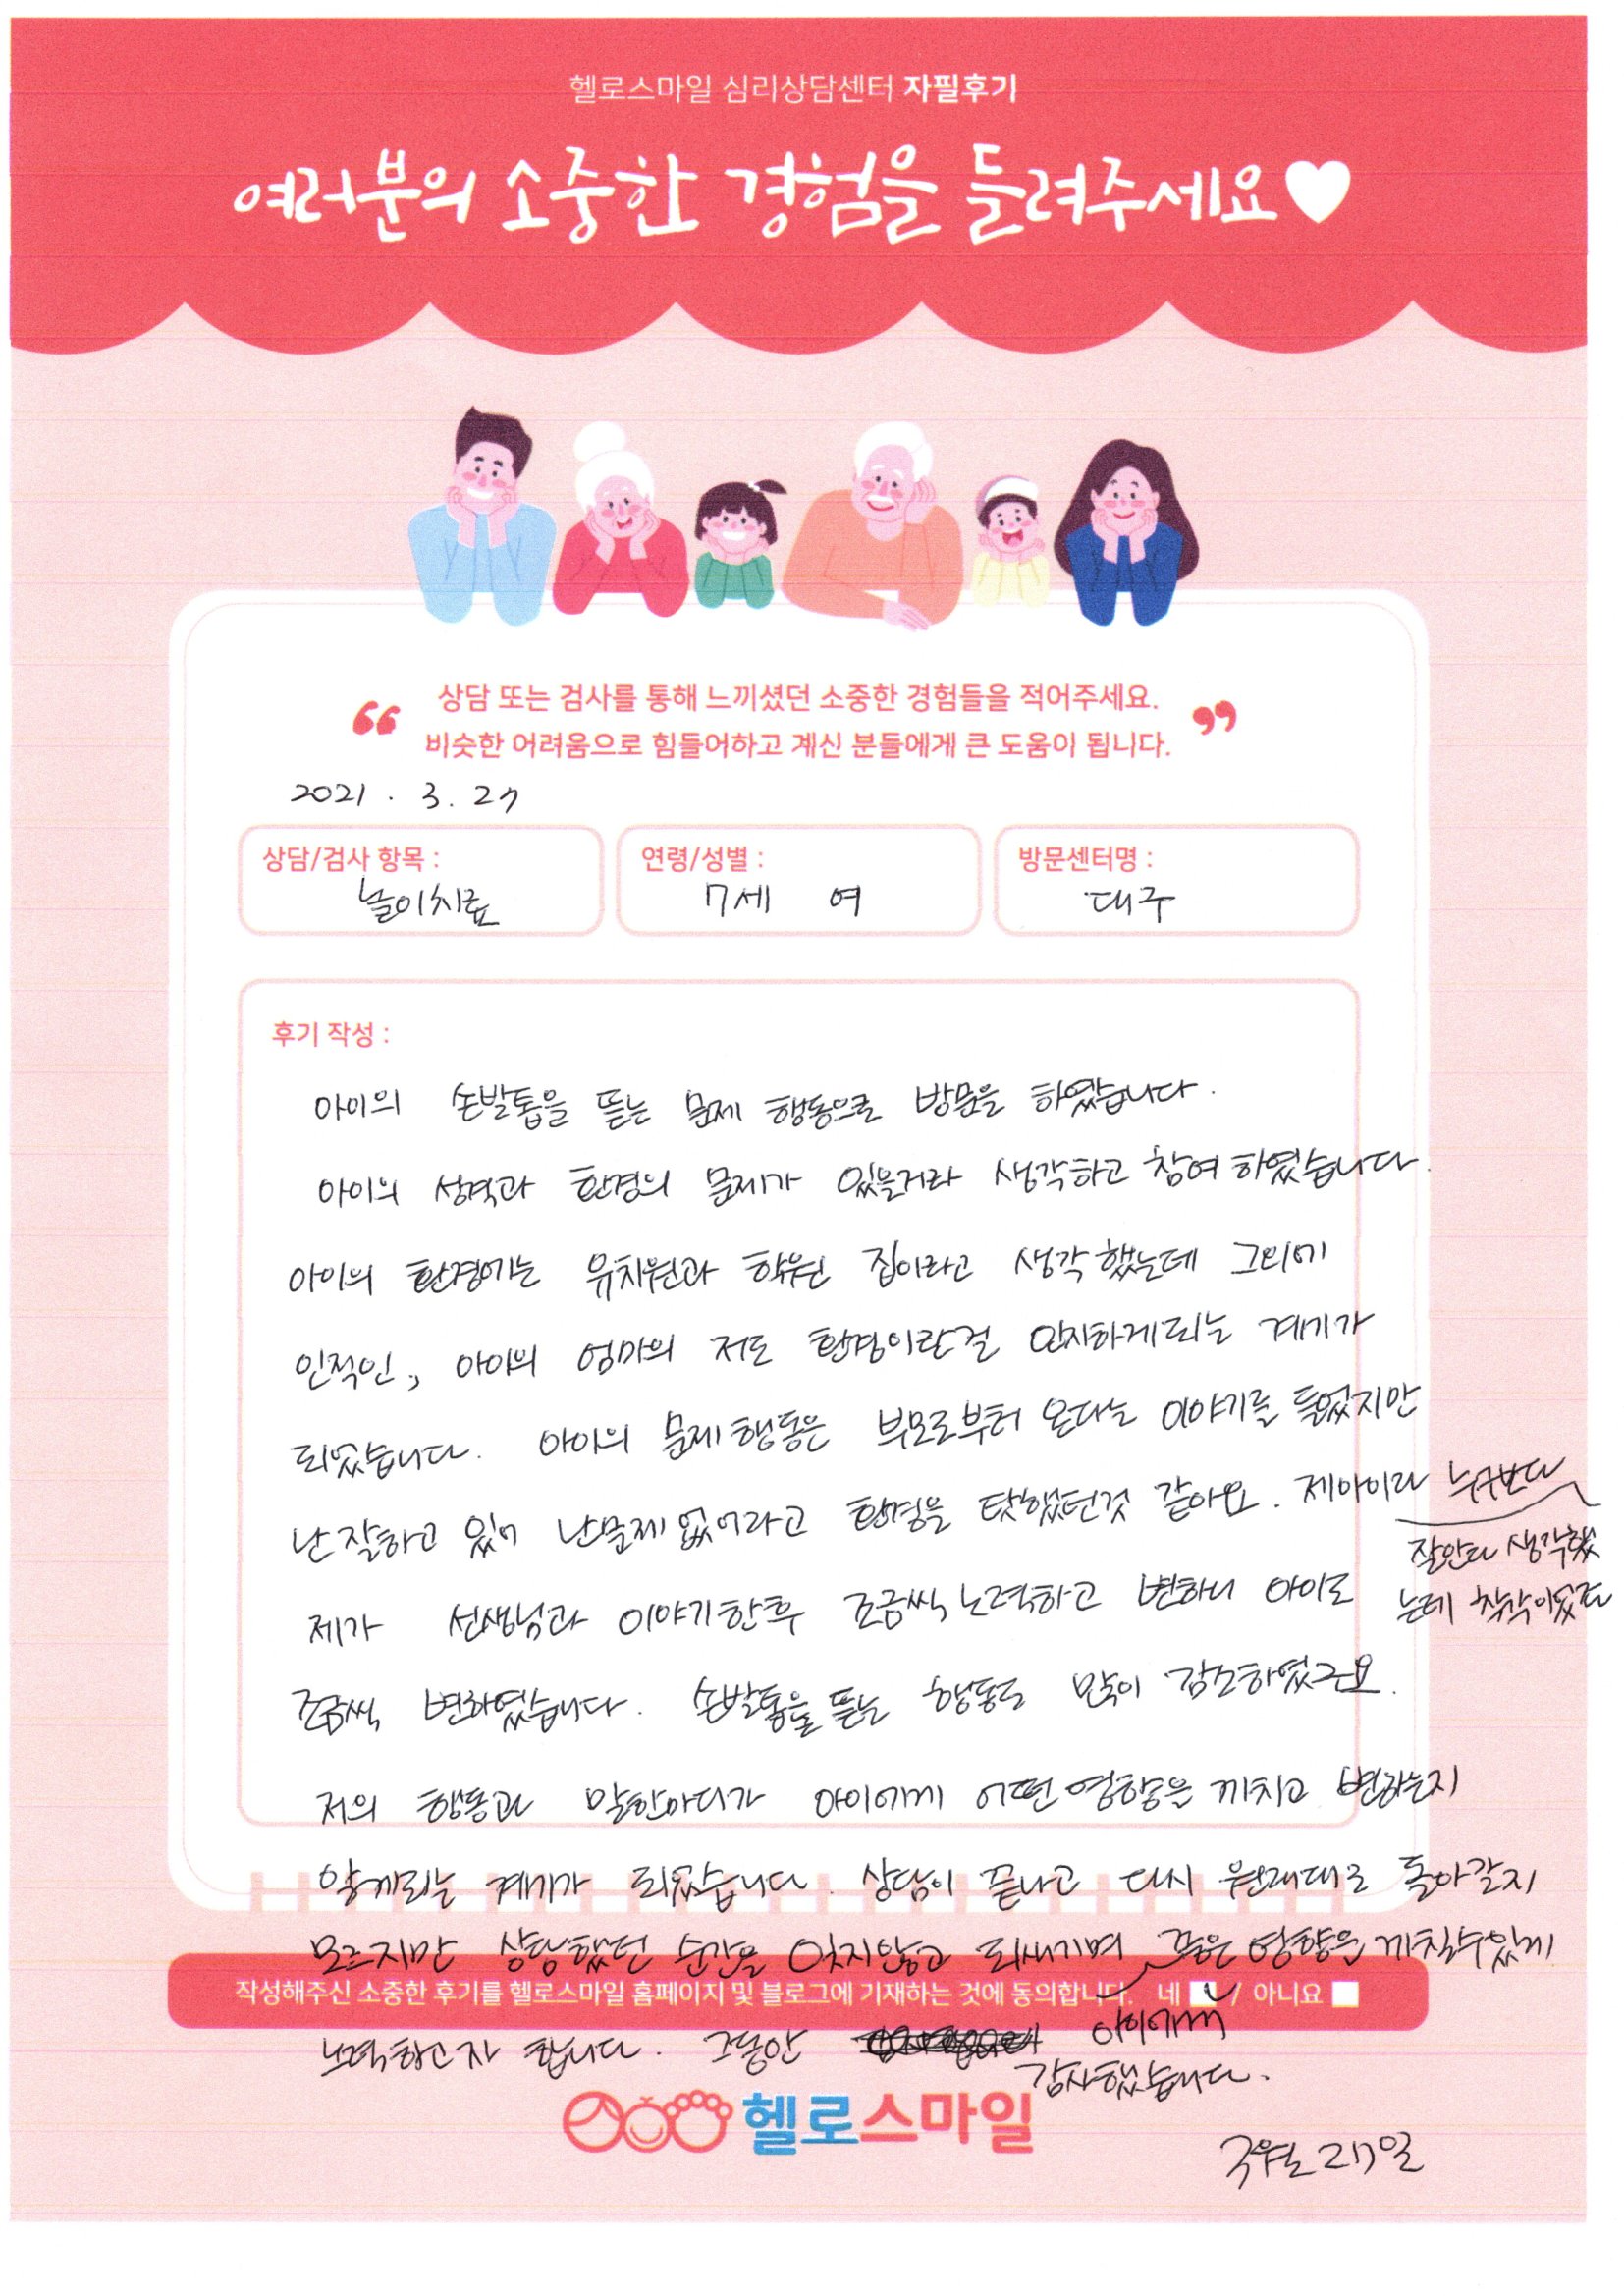 헬로스마일 심리상담센터 자필후기
여러분의 소중한 경험을 들려주세요
상담 또는 검사를 통해 느끼셨던 소중한 경험들을 적어주세요.
비슷한 어려움으로 힘들어하고 계신 분들에게 큰 도움이 됩니다.
2021 . 3 . 27
상담/검사 항목 : 놀이치료
연령/성별 : 7세 여
방문센터명 : 대구
후기 작성 :
아이의 손발톱을 뜯는 문제 행동으로 방문을 하였습니다.
아이의 성격과 환경의 문제가 있을거라 생각하고 참여 하였습니다.
아이의 환경에는 유치원과 학원 집이라고 생각했는데 그외에
인적인, 아이의 엄마의 저도 환경이란걸 인지하게되는 계기가
되었습니다. 아이의 문제행동은 부모로부터 온다는 이야기를 들었지만
난 잘하고 있어 난문제 없어라고 환경을 탓했던것 같아요. 제아이라 누구보다
잘안다 생각했
는데 착각이었죠
제가 선생님과 이야기한후 조금씩 노력하고 변하니 아이도
조금씩 변하였습니다. 손발톱을 뜯는 행동도 많이 감소하였구요.
저의 행동과 말한마디가 아이에게 어떤영향을 끼치고 변하는지
알게되는 계기가 되었습니다. 상담이 끝나고 다시 원래대로 돌아갈지
모르지만 상담했던 순간을 잊지않고 되새기며 좋은 영향을 끼칠수있게
작성해주신 소중한 후기를 헬로스마일 홈페이지 및 블로그에 기재하는 것에 동의합니다. 네 / 아니요
아이에게
노력하고자 합니다. 그동안
감사했습니다.
헬로스마일
3월 27일